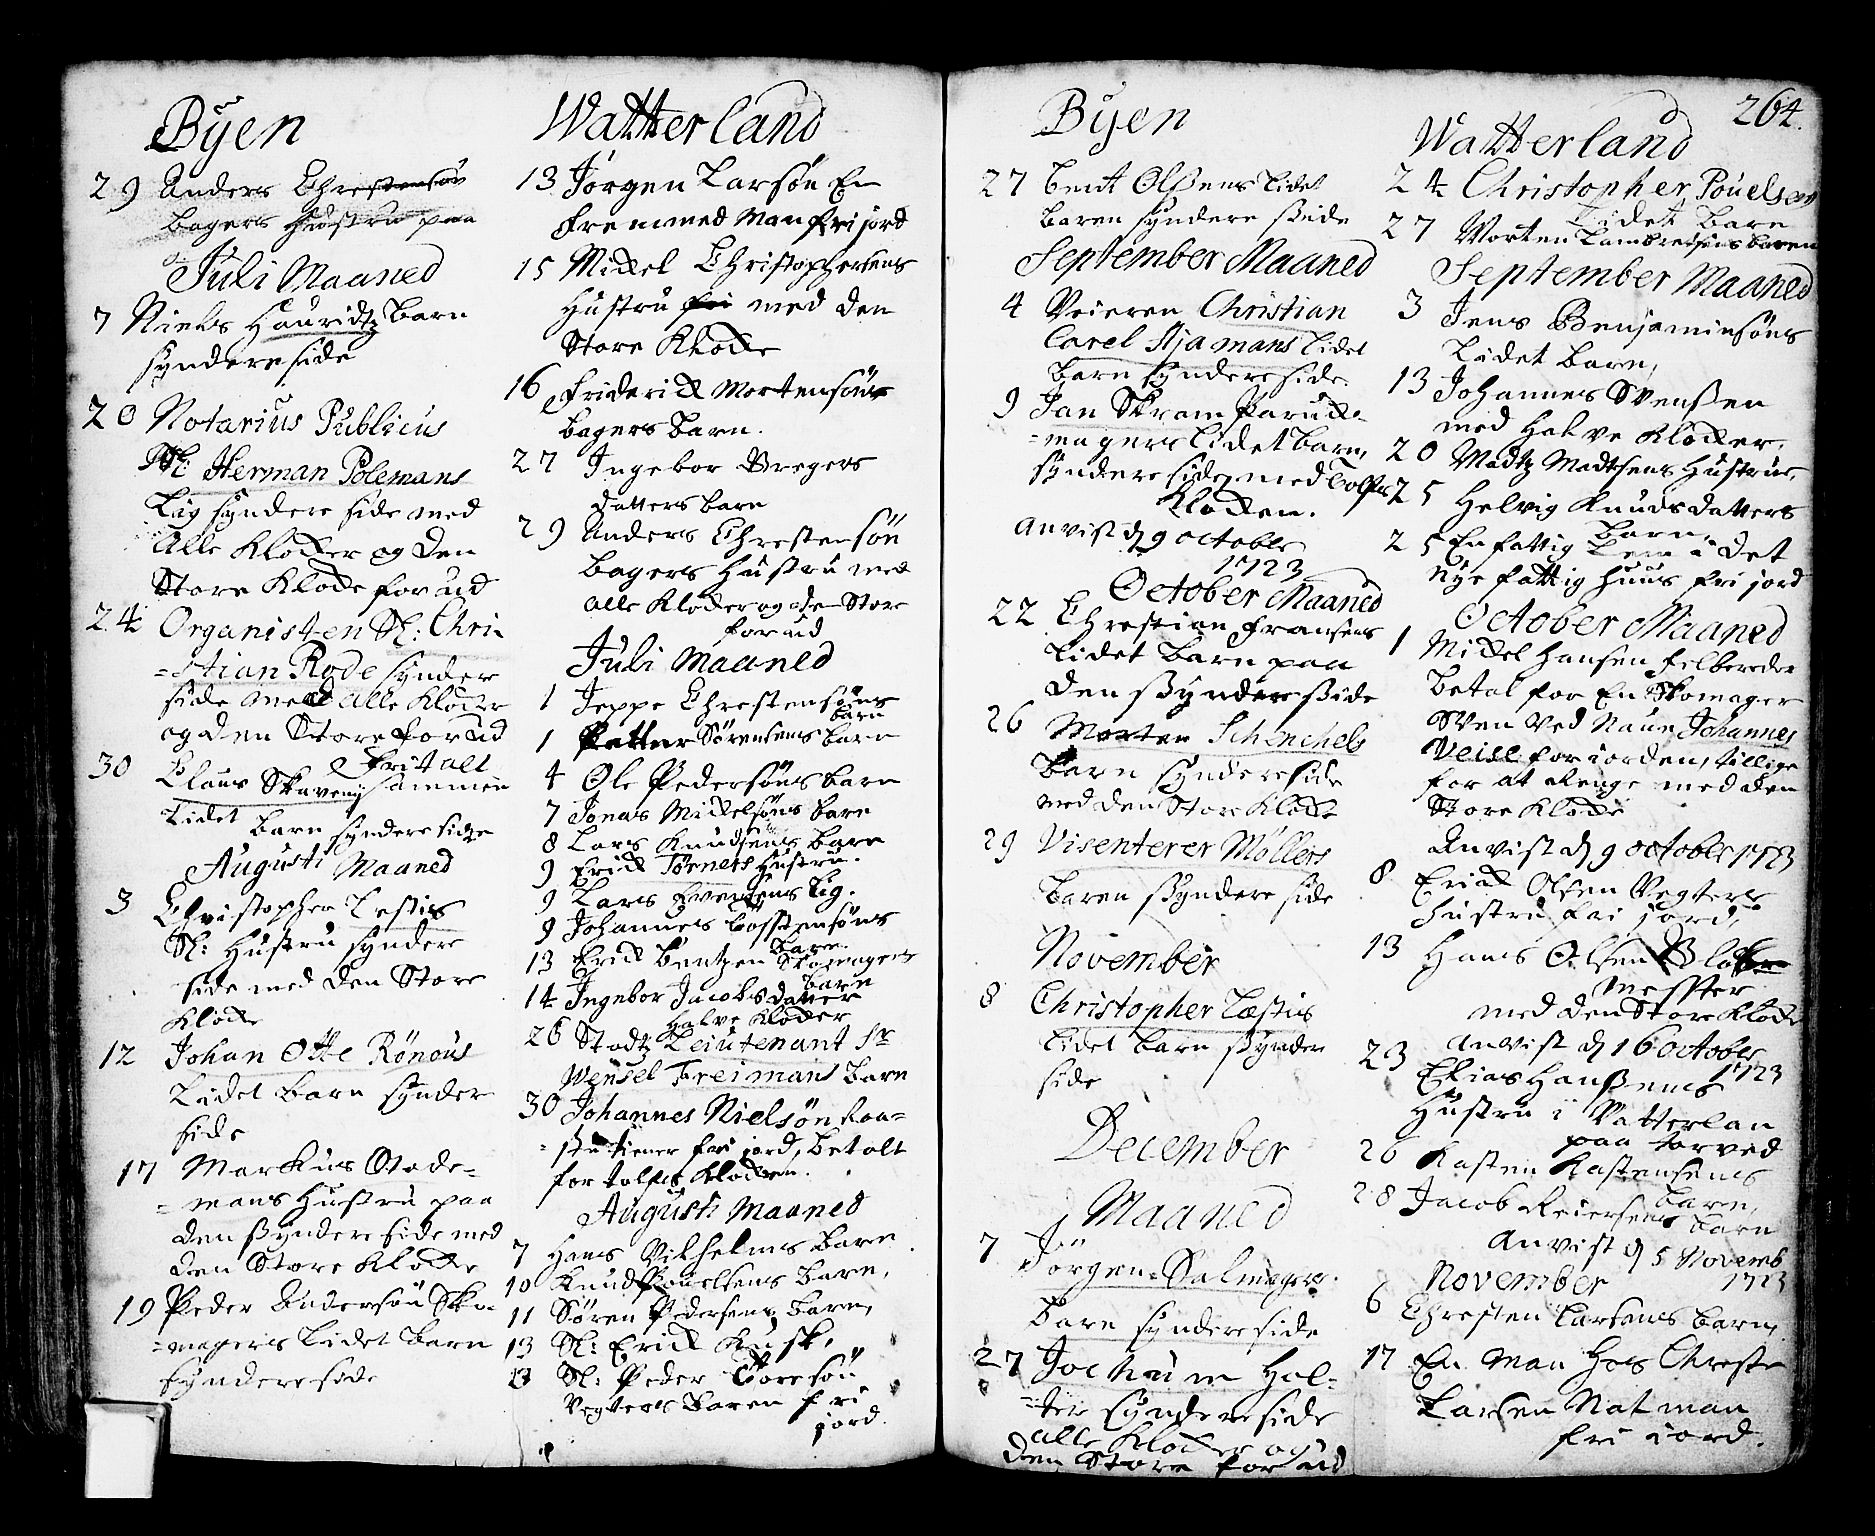 Byen
29 Anders Chrestensøn
bagers Hustru paa
Juli Maaned
7 Niels Hauridtz barn
syndere side
20 Notarius Publicus
Sl: Herman Polemans
Lig syndere side med
Alle Klocker og den
Store Klocke forud
24 Organisten Sl: Chri-
=stian Rode synder
side med alle Klocker
og den Store forud
frit alt
30 Claus Skaveny sammen
Lidet
barn syndere side
Augusti Maaned
3 Christopher Lestius
Sl: Hustru syndere
side med den Store
Klocke
12 Johan Otte Rønous
Lidet barn synder
side
17 Markus Stode-
=mans Hustru paa
den syndere side med
den Store Klocke
19 Peder Andersøn Sko-
=magers Lidet barn
syndere side
Watterland
13 Jørgen Larsøn En
fremmed Man fri jord
15 Mickel Christophersens
Hustru fri med den
Store Klocke
16 Friderick Mortensøns
bagers barn.
27 Ingebor Bregers
datters barn
29 Anders Chrestensøn
bagers Hustru med
alle Klocker og den Store
forud
Juli Maaned
1 Jeppe Chrestensøns
barn
1 Petter Sørensens barn
4 Ole Pedersøns barn
7 Jonas Mickelsøns barn
8 Lars Knudsens barn
9 Erick Tørners Hustru.
9 Lars Svensens Lig.
9 Johannes Tosstensøns
barn.
13 Erick Bentzen Skomagers
barn
14 Ingebor Jacobsdatter
Halve Klocker
26 Stadtz Leiutenant Sr
Wensel Freimans barn
30 Johannes Nielsøn Raa-
=stu tiener fri jord, betalt
for tolfte Klocken.
Augusti Maaned
7 Hans Vilhelms barn
10 Knud Povelsens barn,
11 Søren Pedersens barn,
13 Sl: Erick Kusk,
13 Sl: Peder Toresøn
Vegters baren fri
jord.
Byen
27 Bent Olsens Lidet
baren syndere side
September Maaned
4 Veieren Christian
Carel Stjamans Lidet
barn syndere side.
9 Jan Skram Parucke-
=magers lidet barn,
syndere side, med tolfte
Klocken.
Anvist d 9 october
1723
October Maaned
22 Chrestian Fransens
Lidet barn paa
den syndere side
26 Morten Schenchels
barn syndere side
med den Store Klocke
29 Visenterer Møllers
baren syndere side
November
8 Christopher Læstius
Lidet barn synder
side
December
Maaned
7 Jørgen Salmagers
barn syndere side
27 Jochum Hol-
=ter syndere side
alle Klocker og
den Store for ud
264.
Watterland
24 Christopher Pouelsens
Lidet barn
27 Morten Lambretsens baren
September Maaned
3 Jens Benjaminsøns
Lidet barn,
13 Johannes Svensen
med Halve Klocker,
20 Madtz Madtsens Hustrue,
25 Helvig Knudsdatters
barn,
25 En fattig Lem i det
Nye fattig Huus fri jord
October Maaned
1 Mickel Hansen felbereder
betal for En Skomager
Sven ved Naun Johannes
Veise for iorden, tillige
for at Ringe med den
Store Klocke
Anvist d 9 october 1723
8 Erick Olsen Vegters
Hustru fri jord,
13 Hans Olsen
Mester
med den Store Klocke
Anvist d 16 october
1723
23 Elias Hansens
Hustru i Vatterlan
paa torved
26 Kasten Kastensens
barn,
28 Jacob Reiersens barn
Anvist d 5 Novemb
1723
November
6 Chresten Larsens barn,
17 En Man Hos Chreste
Larsen Natman
fri iord.